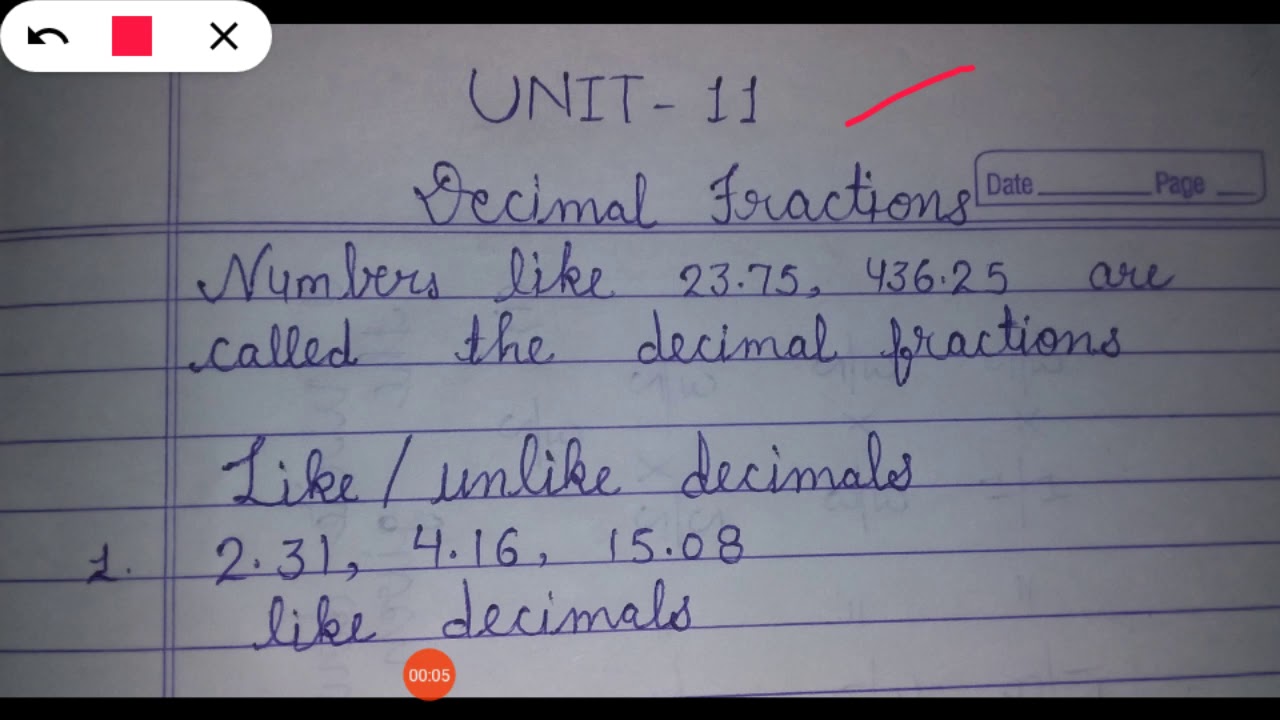 UNIT- 11
Decimal Fractions
Date Page
Numbers like 23.75, 436.25 are
called the decimal fractions
Like/unlike decimals
1. 2.31, 4.16, 15.08
like decimals
00:05